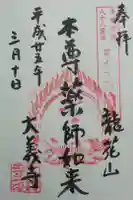 奉拝
龍花山
本尊薬師如来
大義寺
平成廿五年
三月十日